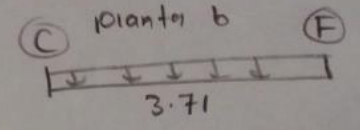 C plantar b F
3.71